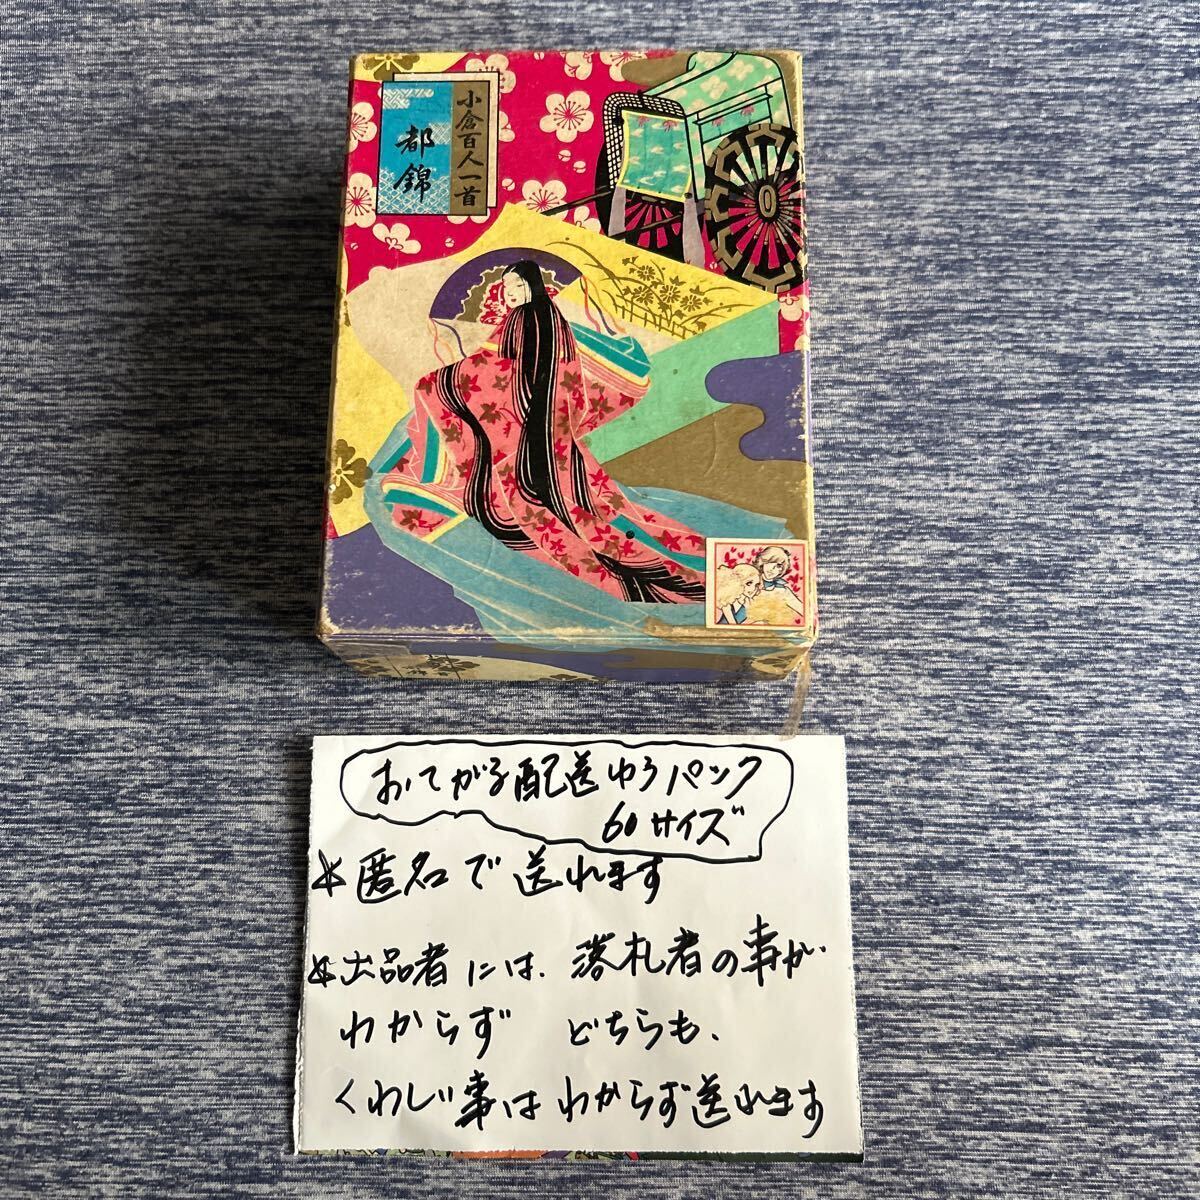 小倉百人一首
都錦
おてがる配送ゆうパック
60サイズ
☆匿名で送れます
☆出品者には、落札者の事が
わからず どちらも、
くわしい事はわからず送れます